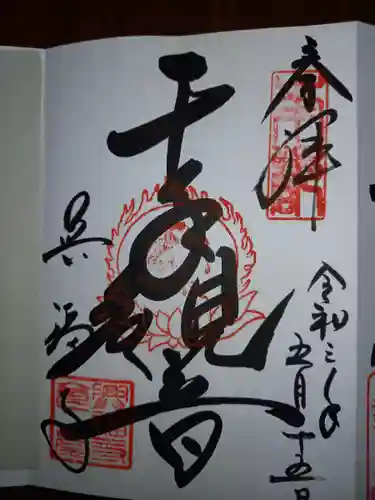 奉拝
令和三年
五月十五日
千手観音
興福寺